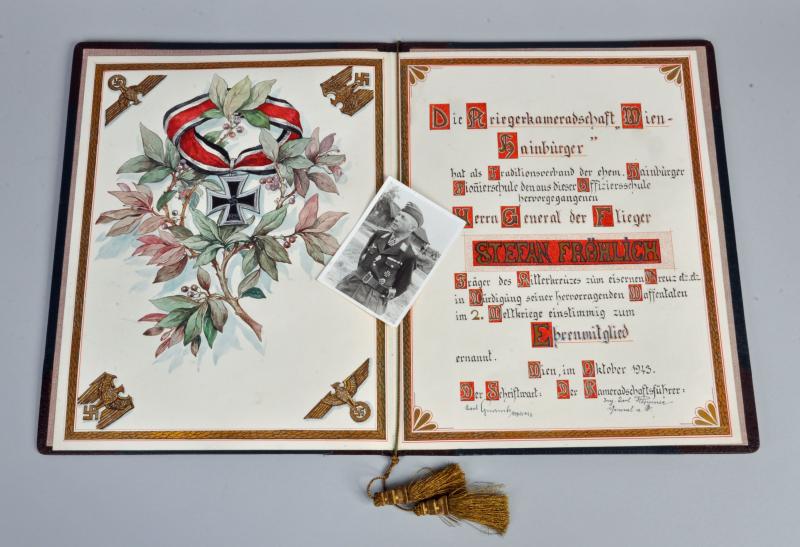 Die Kriegerkameradschaft "Wien-
Hainbürger"
hat als Traditionsverband der ehem. Hainbürger
Pionierschule den aus dieser Offiziersschule
hervorgegangenen
Herrn General der Flieger
STEFAN FRÖHLICH
Träger des Ritterkreuzes zum eisernen Kreuz etz. etz.
in Würdigung seiner hervorragenden Waffentaten
im 2. Weltkriege einstimmig zum
Ehrenmitglied
ernannt.
Wien, im Oktober 1943.
Der Schriftwart: Der Kameradschaftsführer: